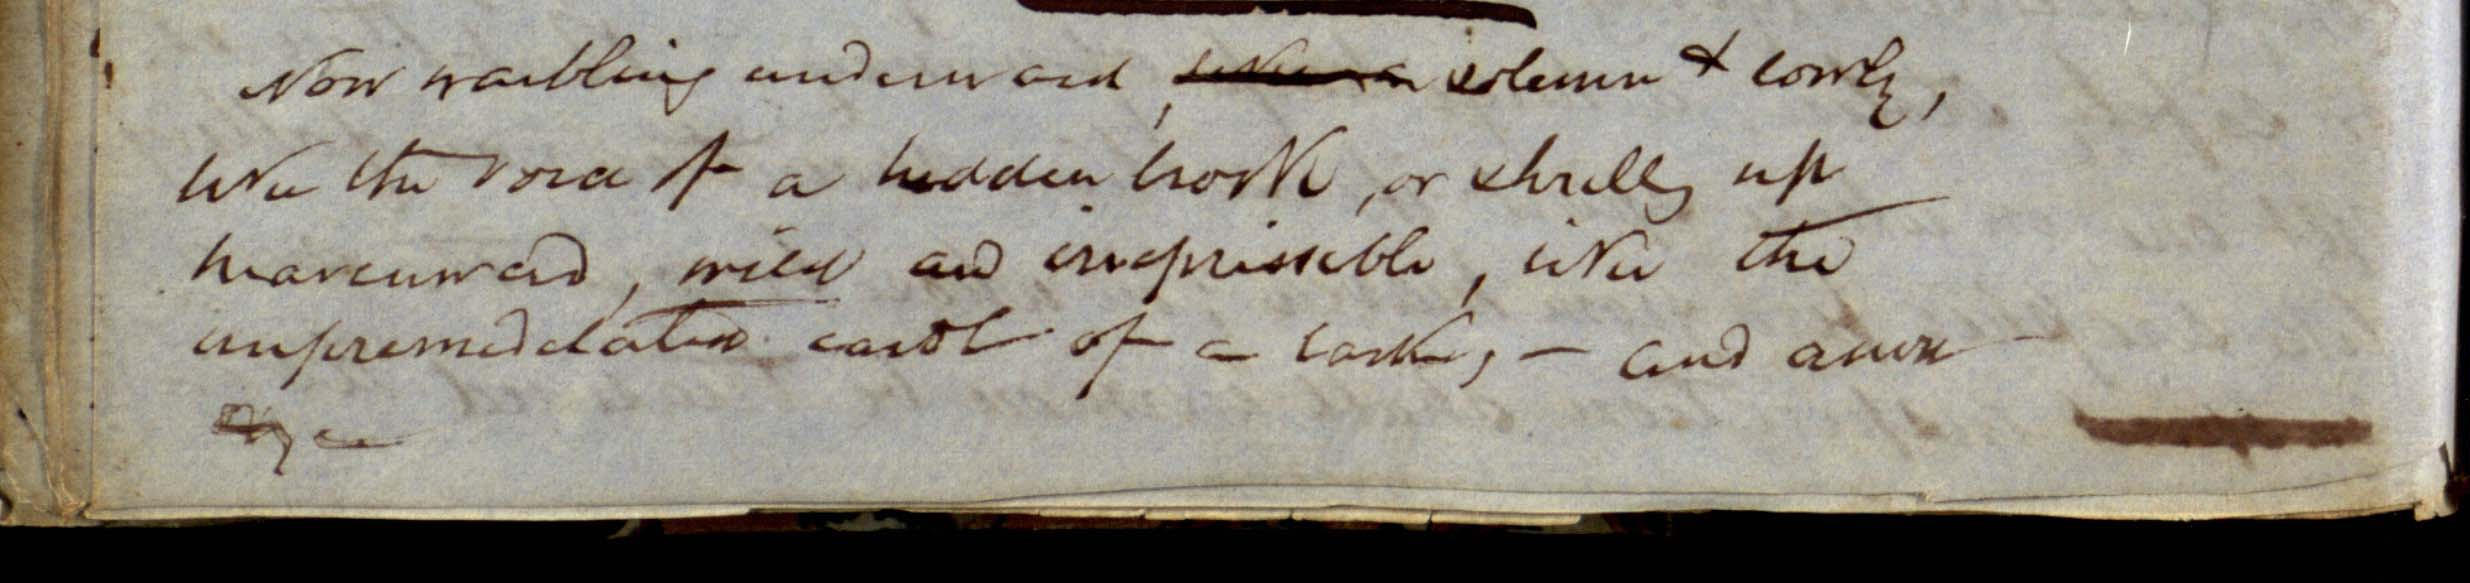 Now warbling underward, solemn & lowly,
like the voice of a hidden brook, or shrilly up
heavenward, wild and irrepressible, like the
unpremeditated carol of a lark, – and anon